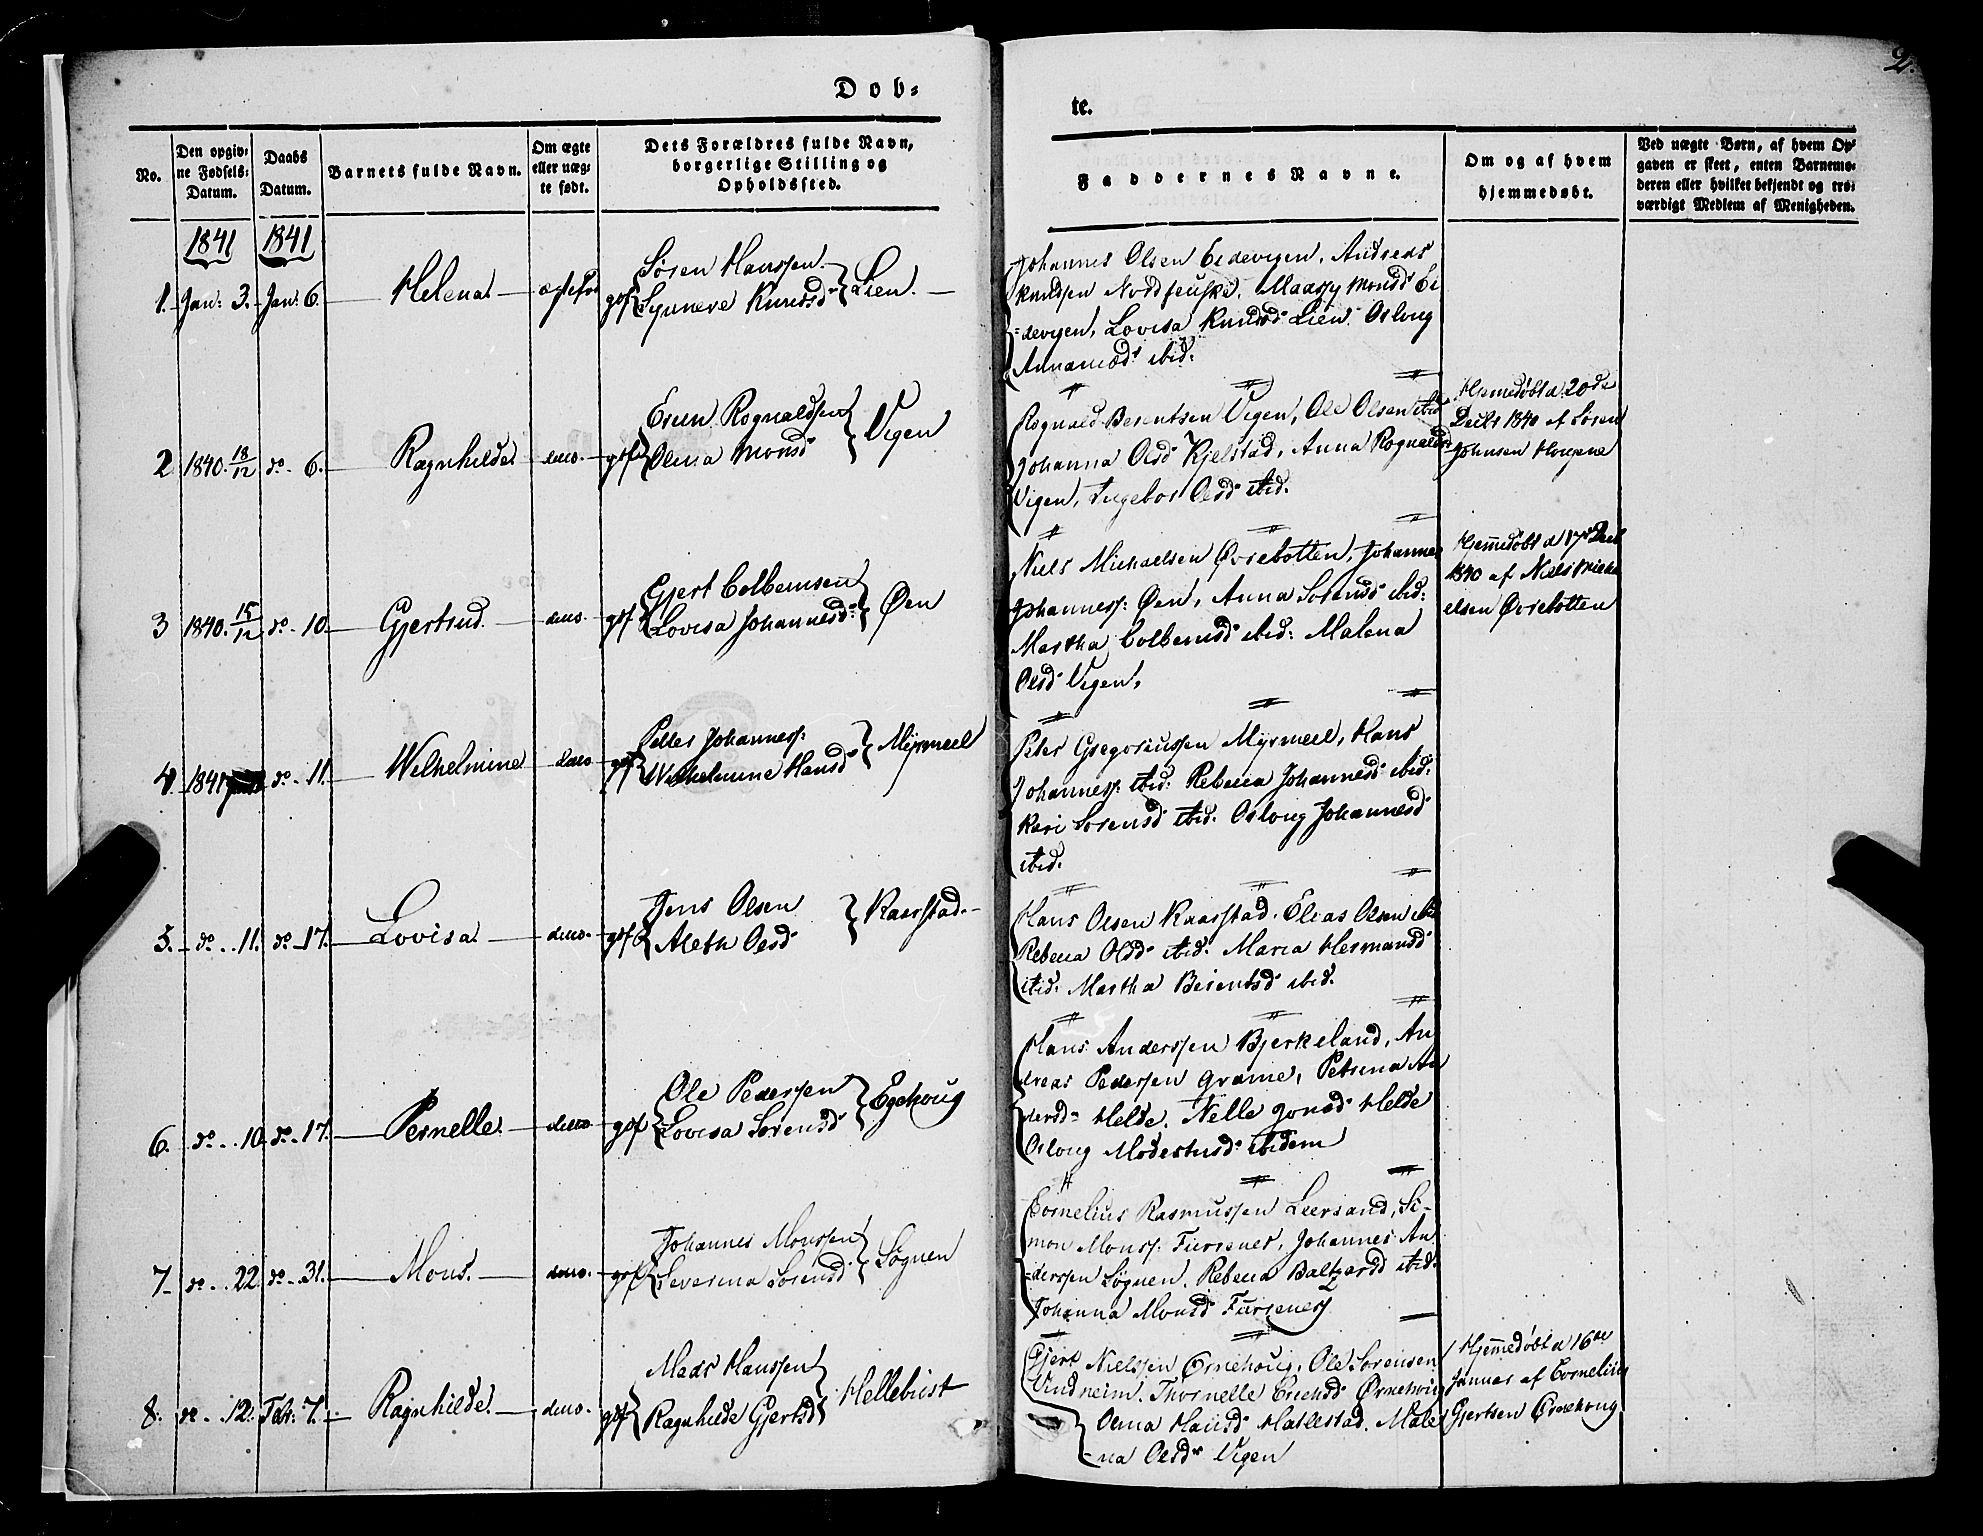 Døb-
te.
2.
No.
Den opgiv-
ne Fødsels-
Datum.
Daabs
Datum.
Barnets fulde Navn.
Om ægte
eller uæg-
te født.
Dets Forældres fulde Navn,
borgerlige Stilling og
Opholdssted.
Faddernes Navne.
Om og af hvem
hjemmedøbt.
Ved uægte Børn, af hvem Op-
gaven er skeet, enten Barnemo-
deren eller hvilket bekjendt og tro-
værdigt Medlem af Menigheden.
1841 1841
1. Jan: 3. Jan: 6. Helena.
gif Søren Hanssen
Synneve Knudsd: Lien.
Johannes Olsen Eidevigen, Andreas
Knudsen Nordfenske, Maassy Monsd: Ei
=devigen, Lovisa Knudsd: Lien Oslong
ibid:
2 1840. 18/12 do - 6. Ragnhilde. do. gif Rognaldsen
Olina Monsd Vigen
Rognald Berentsen Vigen, Ole Olsen ibid
Johanna Olsd Kjelstad, Anna Rognaldsd
Vigen, Ingebor Olsd ibid.
Hjemedøbt d 20de
Decbr 1840 af Søren
Johnsen
3 1840. 15/12 do - 10. Gjertrud do. gif Gjert Colbensen
Lovisa Johannesd: Øen
Niels Michaelsen Øvrebotten, Johannes
Johanness: Øen, Anna Sørensd ibid:
Martha Colbensd ibid: Malena
Olsd Vigen,
Hjemedøbt d 17 Decb
1840 af Niels Micha
elsen Øvrebotten
4. 1841 do - 11. Wilhelmine do. gif Peder Johanness:
Wilhelmine Hansd Myrmeel
Peter Gregoriussen Myrmeel, Hans
Johanness: ibid: Rebecca Johannesd ibid:
Kari Sørensd ibid. Oslong Johannesd
ibid.
5. - do - 11. do - 17. Lovisa. do. gif Jens Olsen
Aleth Olsd Kaarstad.
Hans Olsen Kaarstad. Elias Olsen ibid
Rebecca Olsd ibid: Maria Hermansd
ibid: Martha Berentsd ibid.
6. do - 10 do - 17. Pernelle. do. gif Ole Pedersen
Lovisa Sørensd Egehoug
Hans Anderssen Bjerkeland, An
dreas Pederssen Grame, Petrina An
dersd: Helde. Nille Jonsd Helde
Oslong Modestusd ibidem
7 - do - 22. do - 31. Mons. do. gif Johannes Monssen
Severina Sørensd Søgnen
Cornelius Rasmussen Leersand, Si-
mon Monss: Fursenes, Johannes An
=derssen Søgnen. Rebecca Baltzersd ibid.
Johanna Monsd Fursenes
8. do - 12. Feb: 7. Ragnhilde. do. gif Mads Hanssen
Ragnhilde Gjertsd Hellebust
Gjert Nielssen Ørnehoug, Ole Sørensen
Vindheim. Thornelle Ørnehoug
Olina Hansd Hatlestad. Male
=na Olsd Vigen
Hjemmedøbt d 16de
Januar af Cornelius
Gjertsen Ørnehoug